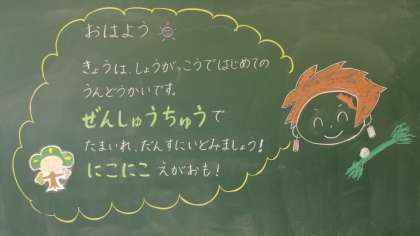 おはよう
きょうは、しょうがっこうではじめての
うんどうかいです。
ぜんしゅうちゅうで
たまいれ、だんすにいどみましょう!
にこにこえがおも!